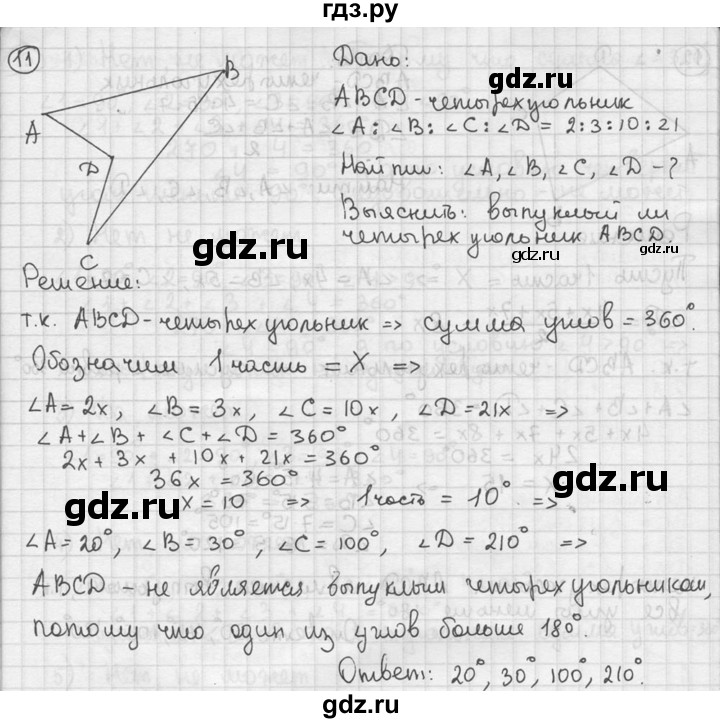 гдз.ру
11
B
A
D
C
Дано:
ABCD-четырехугольник
∠A:∠B:∠C:∠D=2:3:10:21
Найти: ∠A,∠B,∠C,∠D-?
Выяснить: выпуклый ли
четырехугольник ABCD.
gdz.ru
gdz.ru
gdz.ru
Решение:
т.к. ABCD-четырехугольник => сумма углов=360°.
Обозначим 1часть=X =>
∠A=2x, ∠B=3x, ∠C=10x, ∠D=21x =>
∠A+∠B+∠C+∠D=360°
2x+3x+10x+21x=360°
36x=360°
x=10 => 1часть=10° =>
gdz.ru
gdz.ru
∠A=20°, ∠B=30°, ∠C=100°, ∠D=210° =>
ABCD-не является выпуклым четырехугольником,
потому что один из углов больше 180°.
Ответ: 20°, 30°, 100°, 210°.
gdz.ru
gdz.ru
gdz.ru